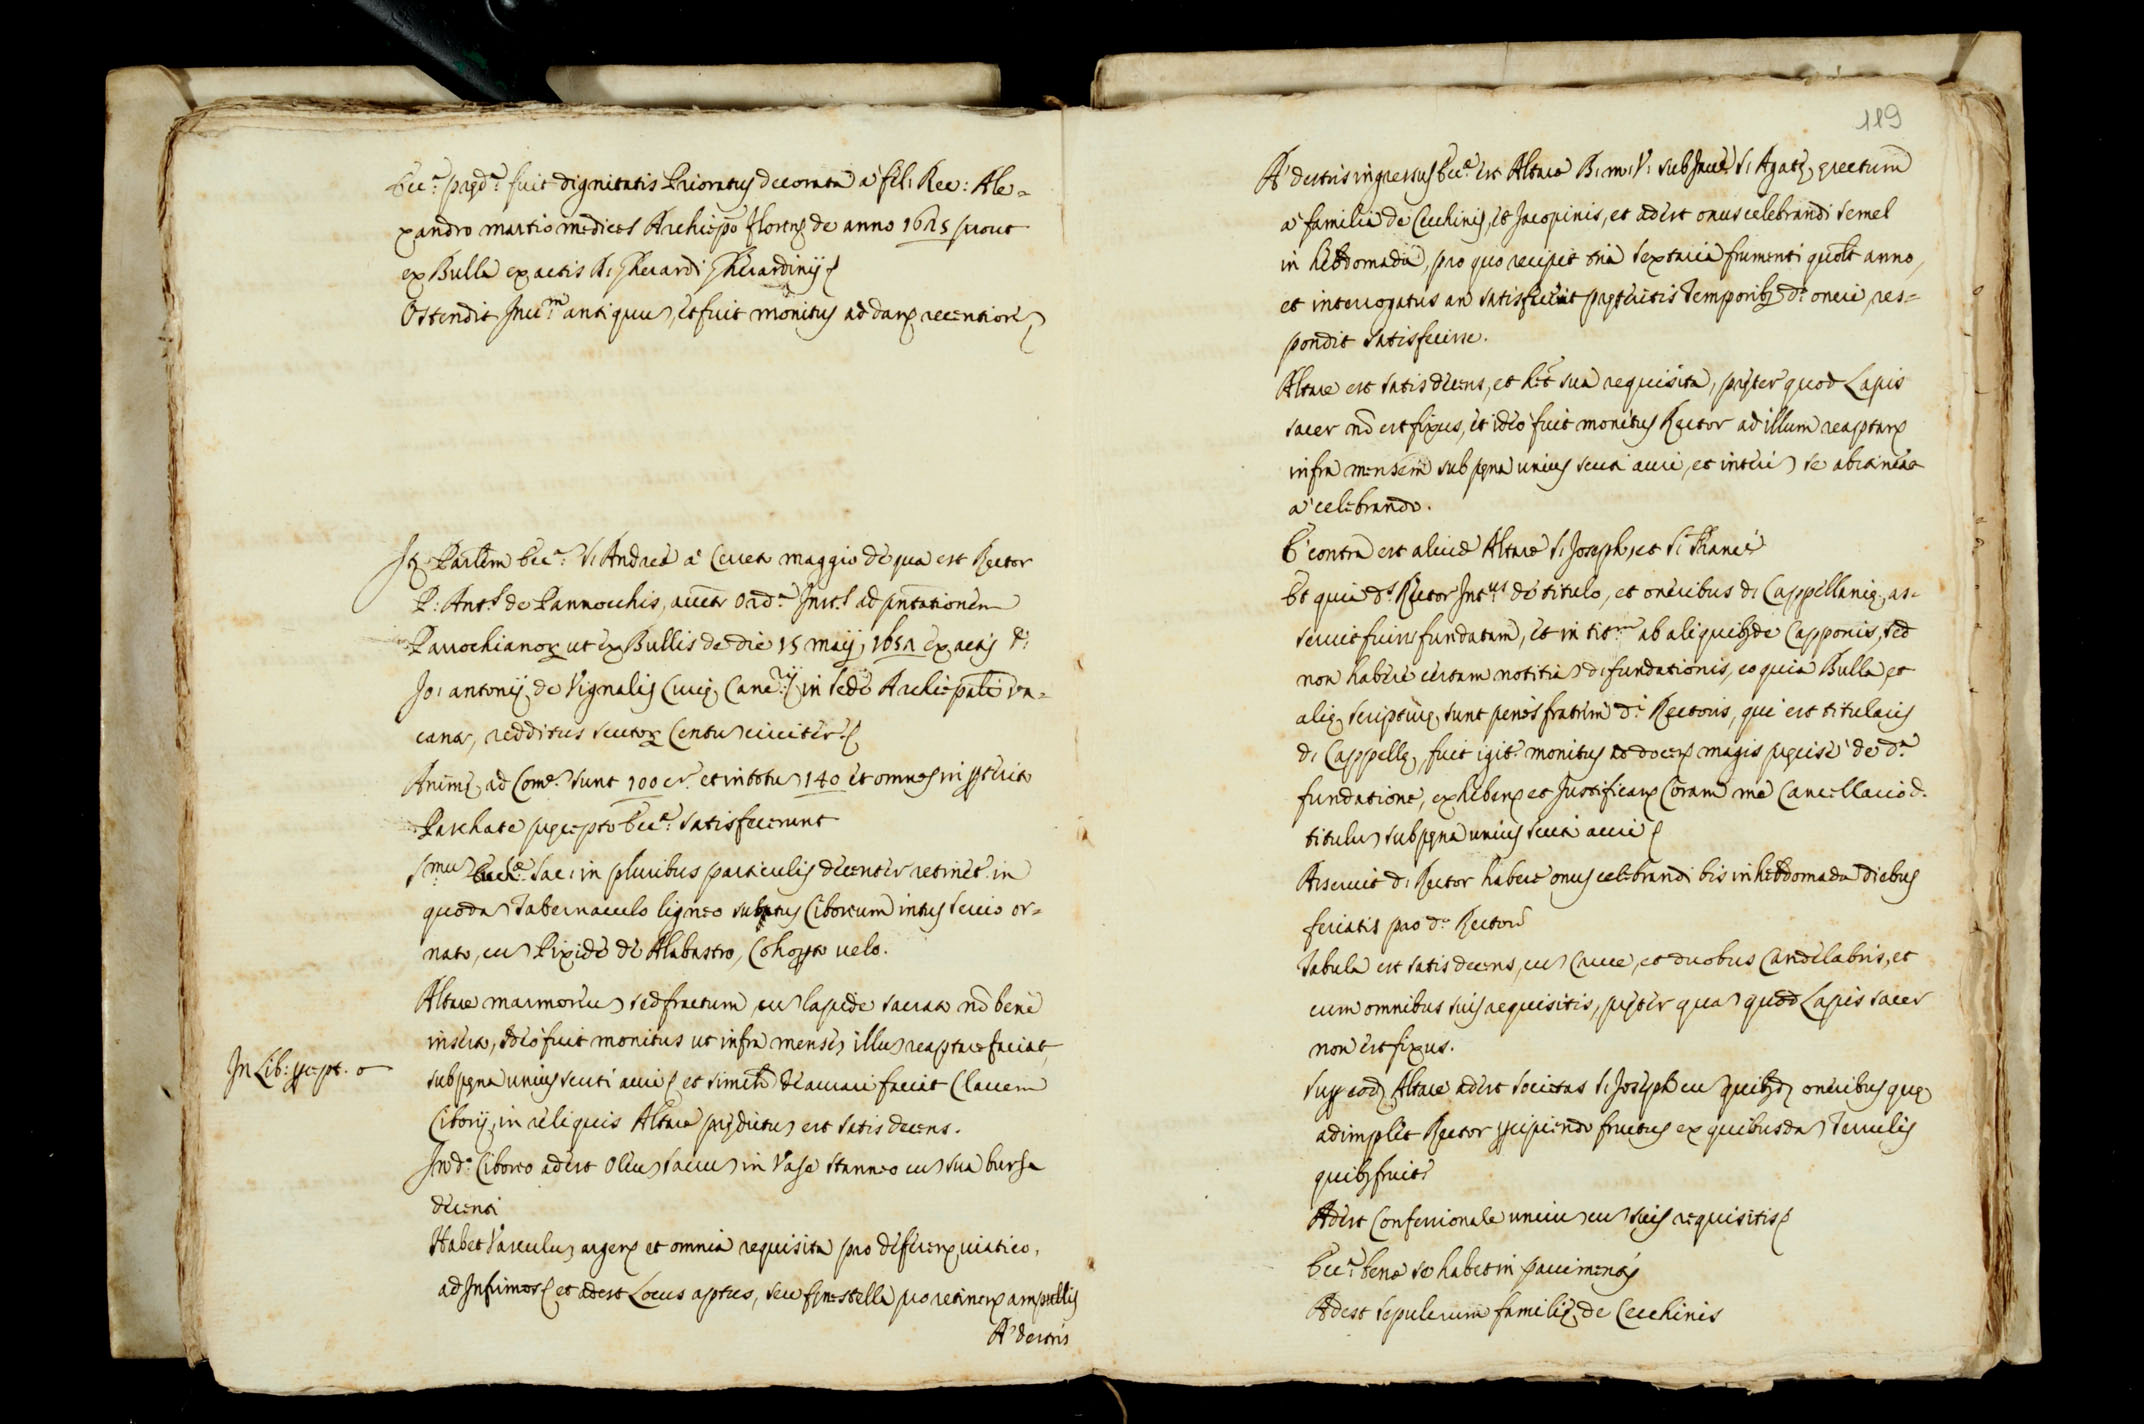 Ecc.ª pręd.ª fuit dignitatis Prioratus decorata à fel: Rec: Ale=
xandro martio medices Archiepō floren̄ de anno 1625 prout
ex Bulla ex actis D. Gherardi Gherardinij
Ostendit Inu.m antiquu, et fuit monitus ad dan recentiore
It Parlem Ecc.ª S. Andreę à Cercta maggio de qua est Rector
P: Ant.s de Pannocchis, auctē Ord.ª Inst.s ad pn̄tationem
Parrochianor ut ex Bullis de die 15 maij 1652 ex actis D:
Jo: antonij de Vignalis Curię Canc.rij in sede Archiepāli va=
cante, redditus scutor Centu circiter
Animę ad Com.e sunt 100 cr. et in totu 140 et omnes in pręterito
Paschate pręcepto Ecc.ę satisfecerunt
S.mu Sac: in pluribus particulis decenter retinet in
quoda Tabernaculo ligneo Ciboreum intus serico or=
nato, cu Pixide de Alabastro, Cohopta velo.
Altare marmoreu sed fractum cu lapide sacrata nō bene
inserta, Ideo fuit monitus ut infra mense illu reaptare faciat,
sub pęna unius scuti auri et simili deaurari faciat Clavem
Ciborij, in reliquis Altare prędictu est satis decens.
In Lib: pręcpt. o
In d.º Ciboreo adest Oleu sacru in Vase stanneo cu sua bursa
decenti
Habet Vasculu argen et omnia requisita pro deferen viatico,
ad Infirmos et adest Locus aptus, seu fenestella pro retinen ampullis
A' dextris
119
A' dextris ingressus Ecc.ę est Altare B. m. V. sub Inuoc. S. Agatę erectum
à familia de Cecchinis, et Jacopinis, et adest onus celebrandi semel
in hebdomada, pro quo recipit tria sextaria frumenti quolt anno,
et interrogatus an satisfecerit pręteritis Temporibȝ d.º oneri, res=
pondit satisfecisse.
Altare est satis decens, et het sua requisita, pręter quod Lapis
sacer nō est fixus, et ideo fuit monitus Rector ad illum reaptan
infra mensem sub pęna unius scuti auri, et interi se abstineat
à celebrando.
E' contra est aliud Altare S. Joseph, et S. Franci
Et quia d.s Rector Int.us de titulo, et oneribus d. Cappellanię, as=
seruit fuisse fundatam, et in tit.m ab aliquibȝ de Capponis, sed
non habere certam notitia d. fundationis, eo quia Bulla et
alię scripturę sunt penes fratrem d.i Rectoris, qui est titularis
d. Cappellę, fuit igit.r monitus docen magis pręcise de d.ª
fundatione, exhiben et Justifican Coram me Cancellario d.
titulu sub pęna unius scuti auri
Asseruit d. Rector habere onus celebrandi bis in hebdomada diebus
feriatis pro d.º Rectore
Tabula est satis decens, cu Cruce, et duobus Candelabris, et
cum omnibus suis requisitis, pręter qua quod Lapis sacer
non est fixus.
Supr eod Altare adest societas S. Joseph cu quibȝd oneribus quę
adimplet Rector pcipiendo fructus ex quibusda Terrulis
quibȝ fruit.r
Adest Confessionale unicu cu suis requisitis
Ecc.ª bene se habet in pauimento
Adest sepulcrum familię de Cecchinis